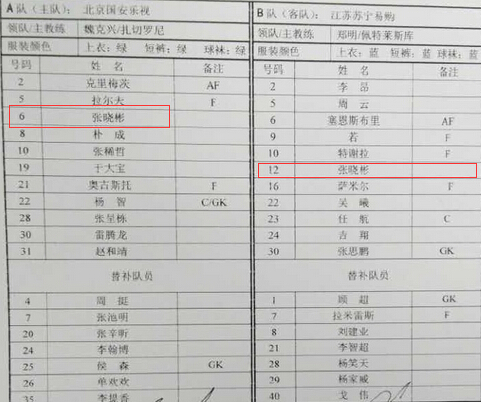 A 队（主队）： 北京国安乐视
领队/主教练 魏克兴/扎切罗尼
服装颜色 上衣：绿 短裤：绿 球袜：绿
号码 姓 名 备注
2 克里梅茨 AF
5 拉尔夫 F
6 张晓彬
8 朴 成
10 张稀哲
19 于大宝
21 奥古斯托 F
22 杨 智 C/GK
28 张呈栋
30 雷腾龙
31 赵和靖
替补队员
4 周 挺
7 张池明
20 张辛昕
24 李翰博
25 侯 森 GK
26 单欢欢
35 李提香
B 队（客队）： 江苏苏宁易购
领队/主教练 郑明/佩特莱斯库
服装颜色 上衣：蓝 短裤：蓝 球袜：蓝
号码 姓 名 备注
2 李 昂
5 周 云
6 塞恩斯布里 AF
9 若 F
10 特谢拉 F
12 张晓彬
16 萨米尔 F
22 吴 曦
23 任 航 C
24 吉 翔
30 张思鹏 GK
替补队员
1 顾 超 GK
7 拉米雷斯 F
8 刘建业
21 李智超
28 杨笑天
29 杨家威
40 戈 伟